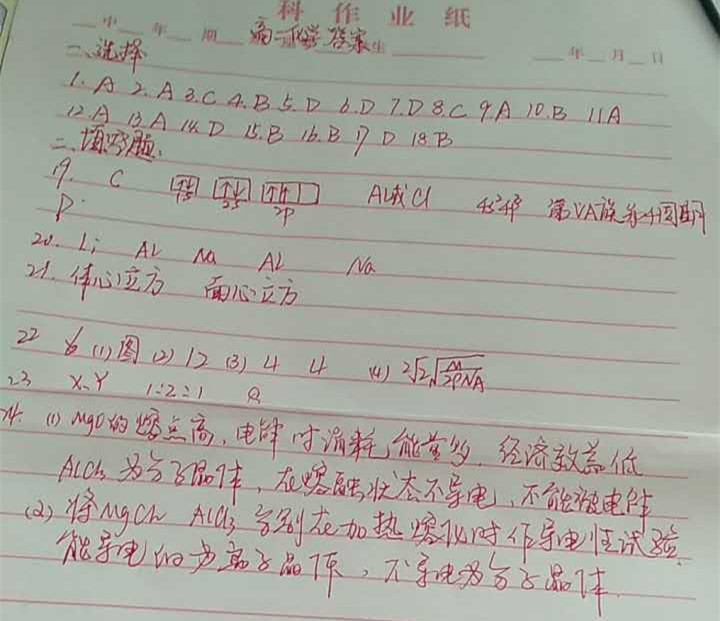 科作业纸
中 年 期 高一化学 答案 生 年 月 日
一、选择
1. A 2. A 3. C 4. B 5. D 6. D 7. D 8. C 9. A 10. B 11 A
12. A 13. A 14. D 15. B 16. B 17 D 18. B
二、填空题、
19. C ↑↓ 1s ↑↓ 2s ↑ ↑ 2p Al或Cl 第VA族第4周期
P
20. Li Al Na Al Na
21. 体心立方 面心立方
22 (1) 图 (2) 12 (3) 4 4 (4)
23 X、Y 1:2:1 8
24. (1) MgO的熔点高，电解时消耗能量多，经济效益低
AlCl₃为分子晶体，在熔融状态不导电，不能被电解
(2) 将MgCl₂ AlCl₃分别在加热熔化时作导电性试验，
能导电的为离子晶体，不导电为分子晶体.